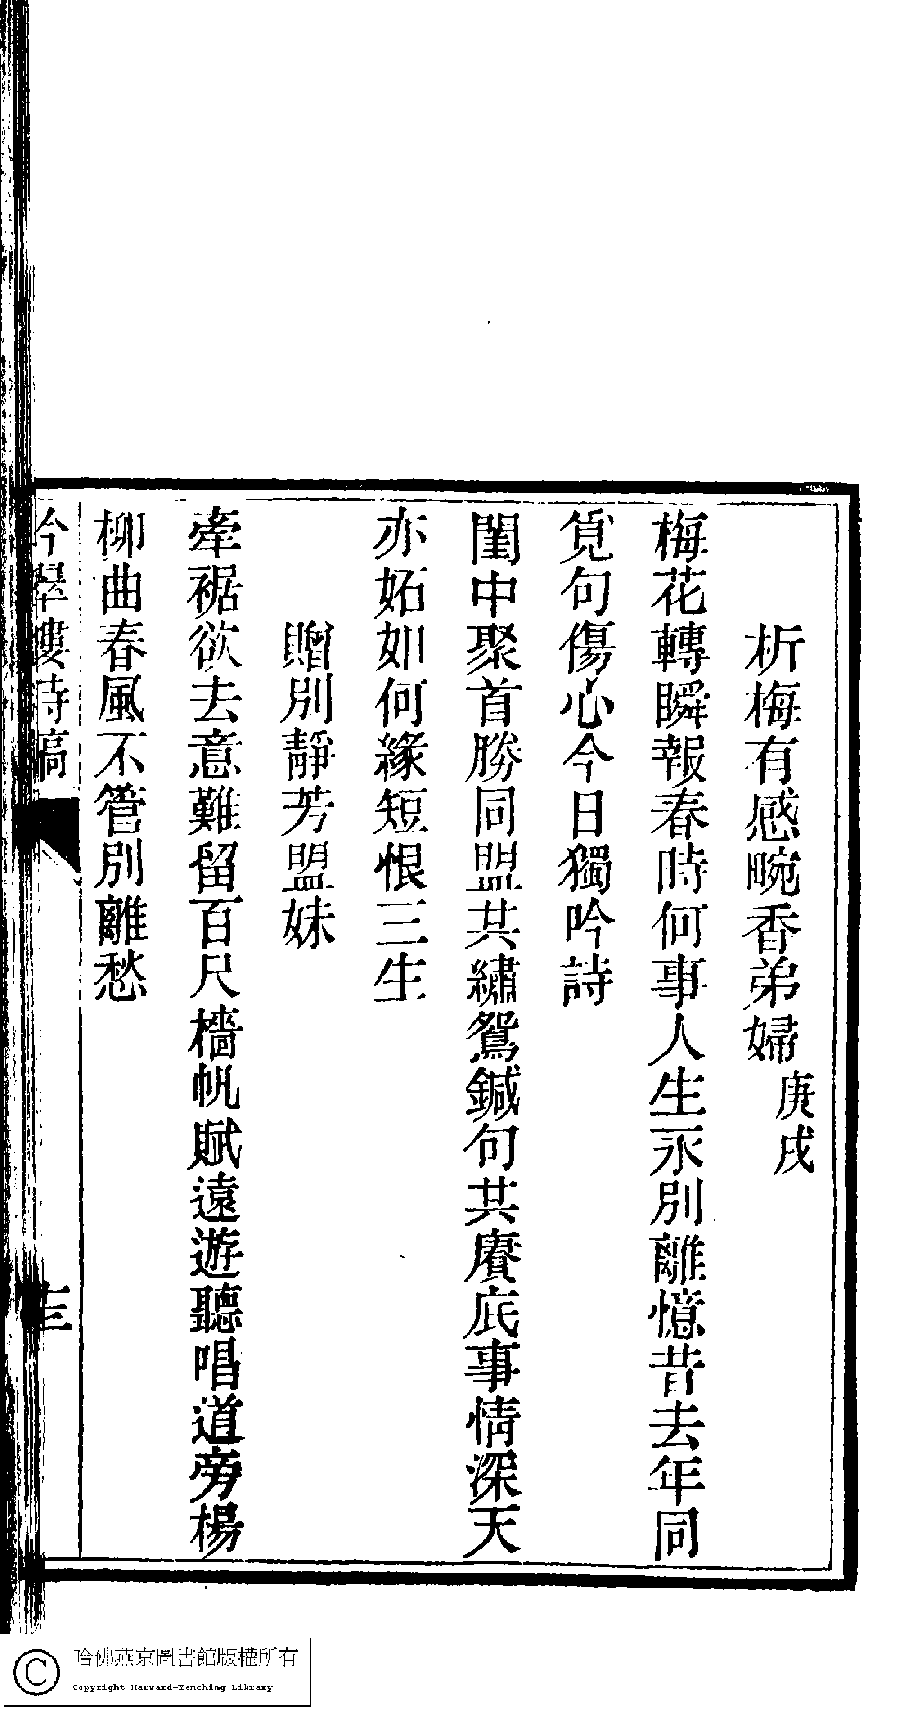 析梅有感畹香弟婦庚戌
梅花轉瞬報春時何事人生永別離憶昔去年同
覓句傷心今日獨吟詩
閨中聚首勝同盟共繡鴛鍼句共賡底事情深天
亦妬如何緣短恨三生
贈別靜芳盟妹
牽裾欲去意難留百尺檣帆賦遠遊聽唱道旁楊
柳曲春風不管別離愁
吟翠樓詩稿
十三
哈佛燕京圖書館版權所有
Copyright Harvard-Yenching Library